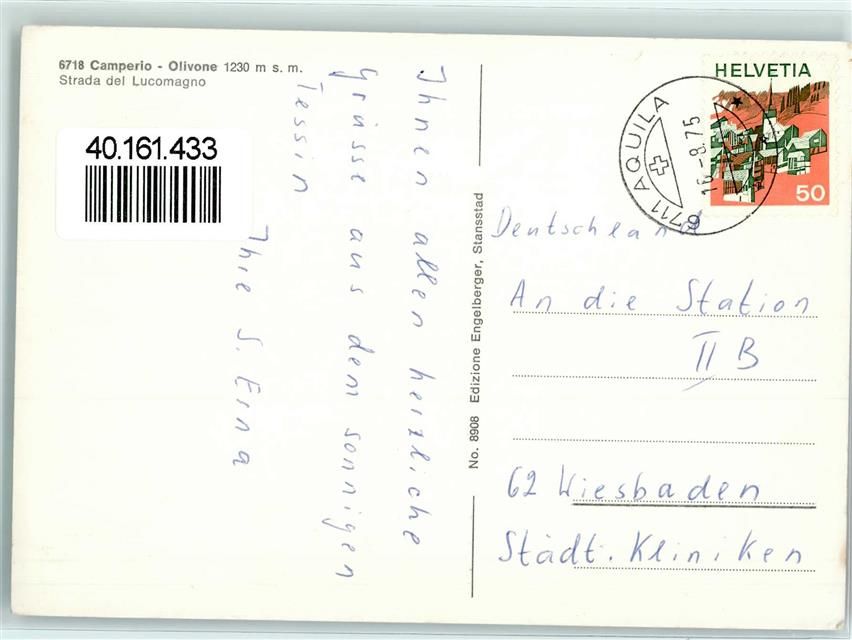 6718 Camperio - Olivone 1230 m s. m.
Strada del Lucomagno
40.161.433
Ihnen allen herzliche
Grüsse aus dem sonnigen
Tessin
Ihre S. Erna
No. 8908 Edizione Engelberger, Stansstad
HELVETIA
50
6711 AQUILA
16.-8.75
Deutschland
An die Station
II B
62 Wiesbaden
Städt. Kliniken